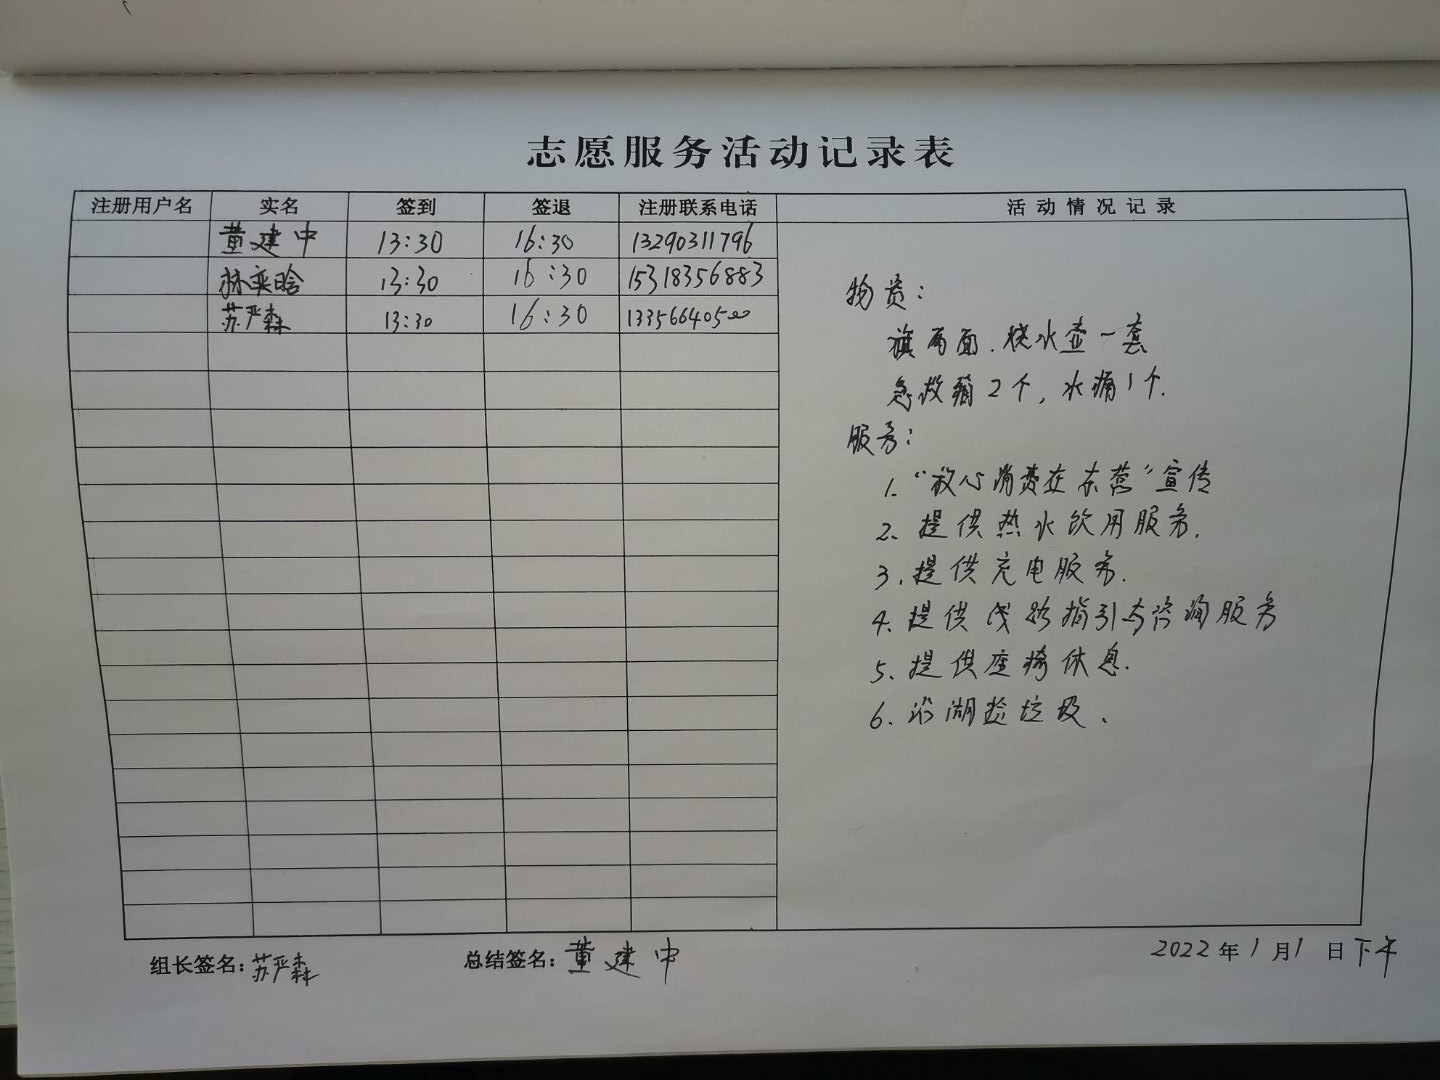 志愿服务活动记录表
注册用户名 实名 签到 签退 注册联系电话 活动情况记录
董建中 13:30 16:30 13290311796
林奕晗 13:30 16:30 15318356883
苏严森 13:30 16:30 13356640500
物资:
旗两面.烧水壶一套
急救箱2个,水桶1个.
服务:
1. “放心消费在东营”宣传
2. 提供热水饮用服务.
3. 提供充电服务.
4. 提供线路指引与咨询服务
5. 提供座椅休息.
6. 沿湖捡垃圾、
组长签名:苏严森 总结签名:董建中 2022年1月1日下午